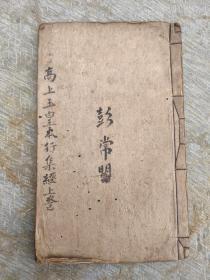 高上玉皇本行集經上卷
彭常明